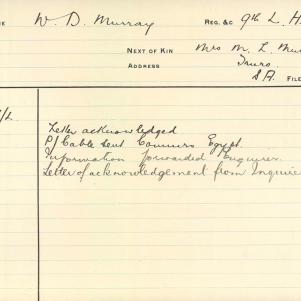 ME W. D. Murray REG. &c 9th L. H.
NEXT OF KIN Mrs M. L. Mur
ADDRESS Truro.
S A. FILE
/2
Letter acknowledged
P/ Cable sent Commrs Egypt.
Information forwarded Enquirer
Letter of acknowledgement from Inquire